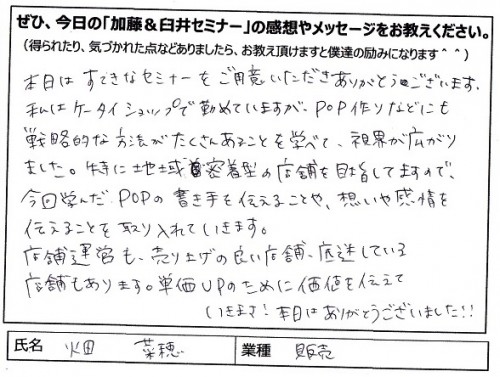 ぜひ、今日の「加藤&臼井セミナー」の感想やメッセージをお教えください。
（得られたり、気づかれた点などありましたら、お教え頂けますと僕達の励みになります＾＾）
本日はすてきなセミナーをご用意いただきありがとうございます。
私はケータイショップで勤めていますが、POP作りなどにも
戦略的な方法がたくさんあることを学べて、視界が広がり
ました。特に地域密着型の店舗を目指してますので、
今回学んだPOPの書き手を伝えることや、想いや感情を
伝えることを取り入れていきます。
店舗運営も、売り上げの良い店舗、低迷している
店舗もあります。単価UPのために価値を伝えて
いきます！本日はありがとうございました!!
氏名 畑 菜穂 業種 販売